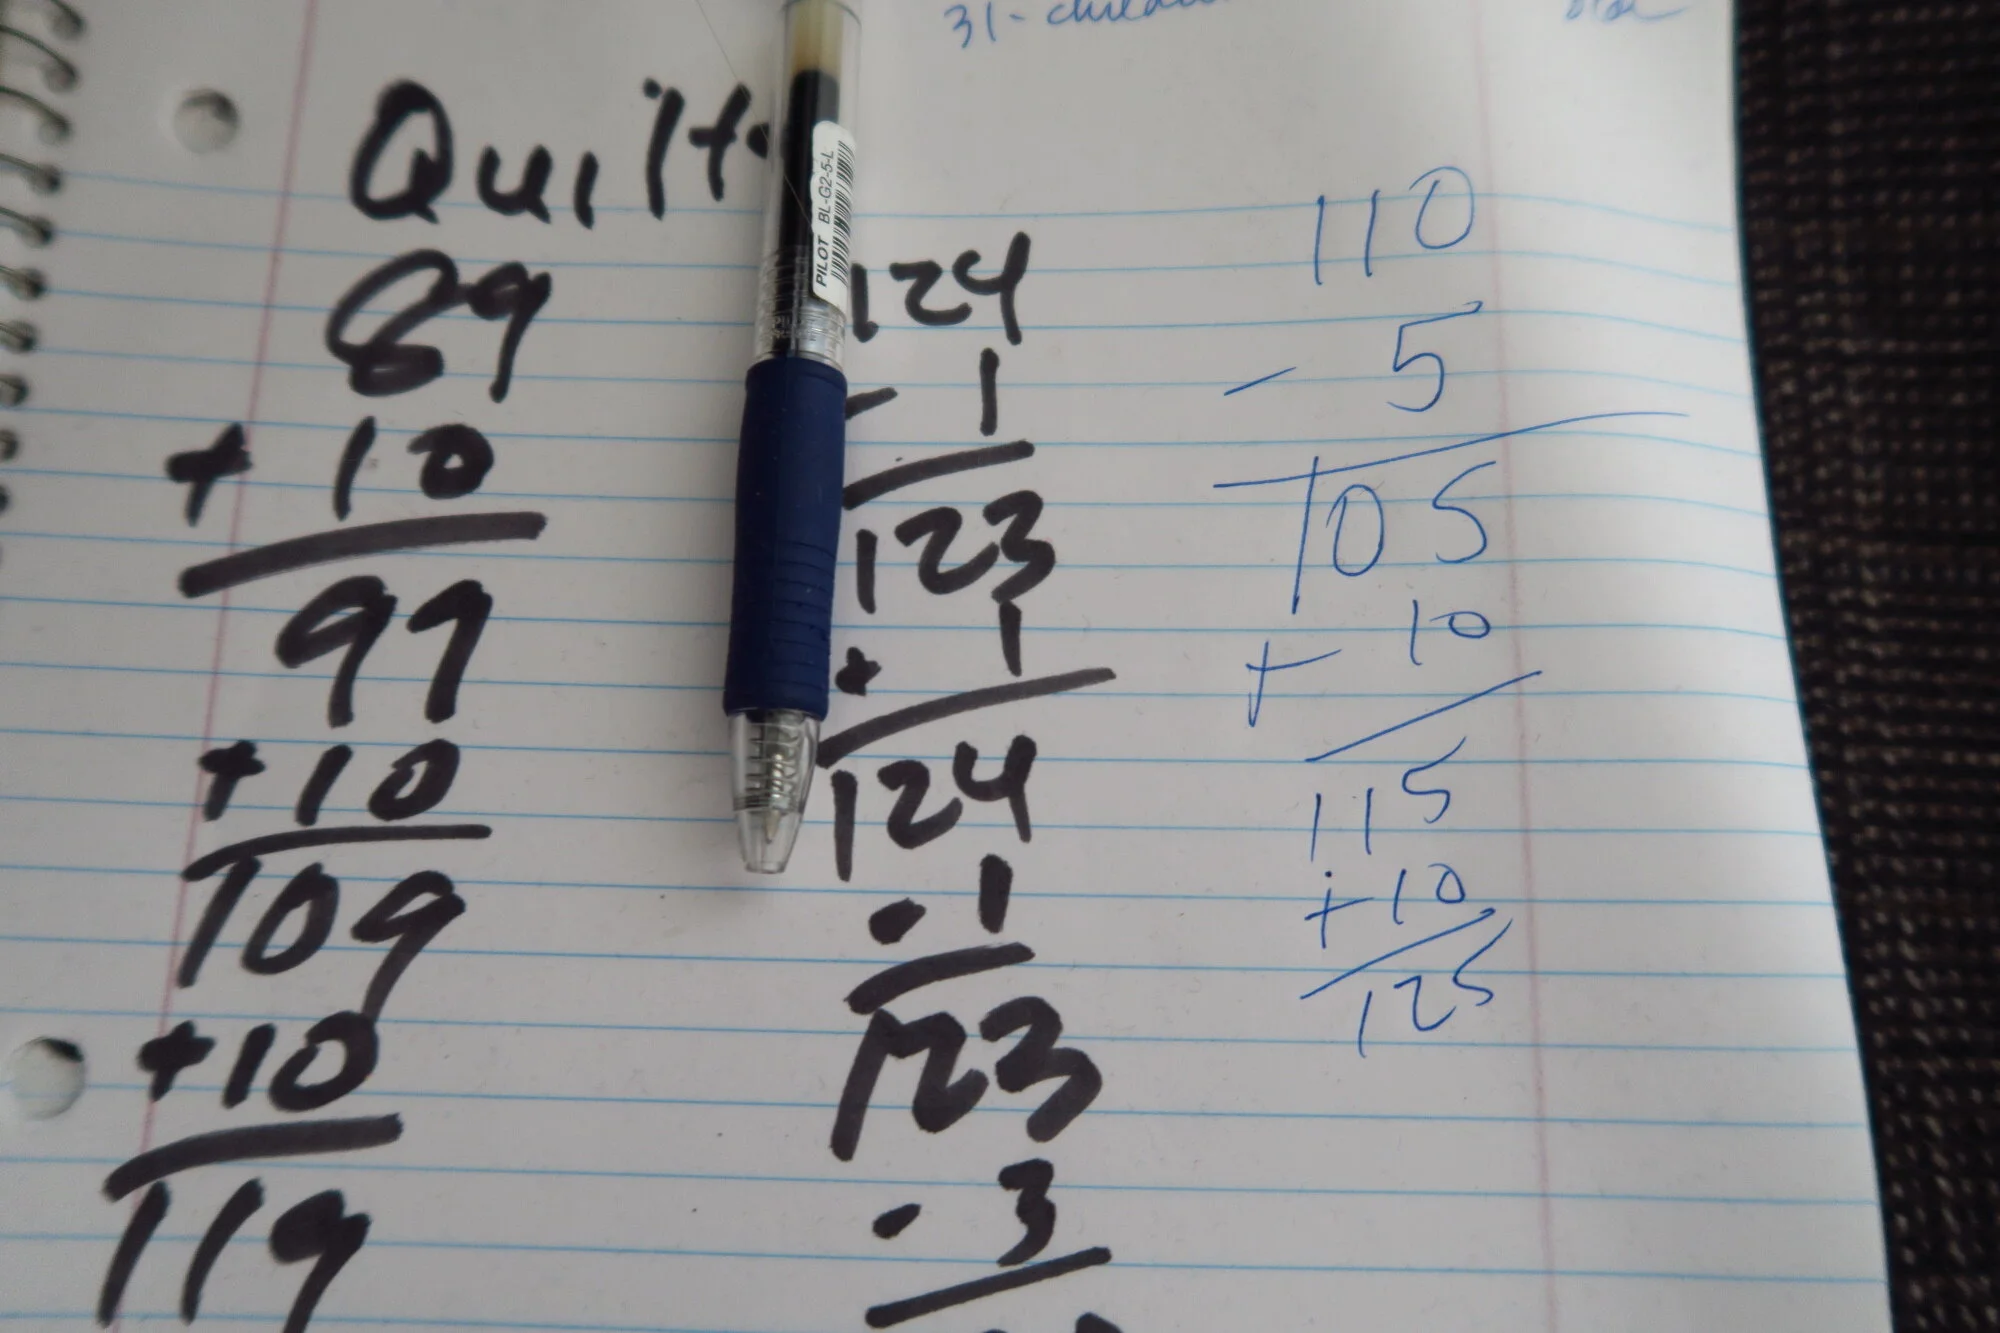 31-
Quilt
89
+ 10
99
+10
109
+10
119
PILOT BL-G2-5-L
124
- 1
123
+ 1
124
- 1
123
- 3
110
- 5
105
+ 10
115
+10
125